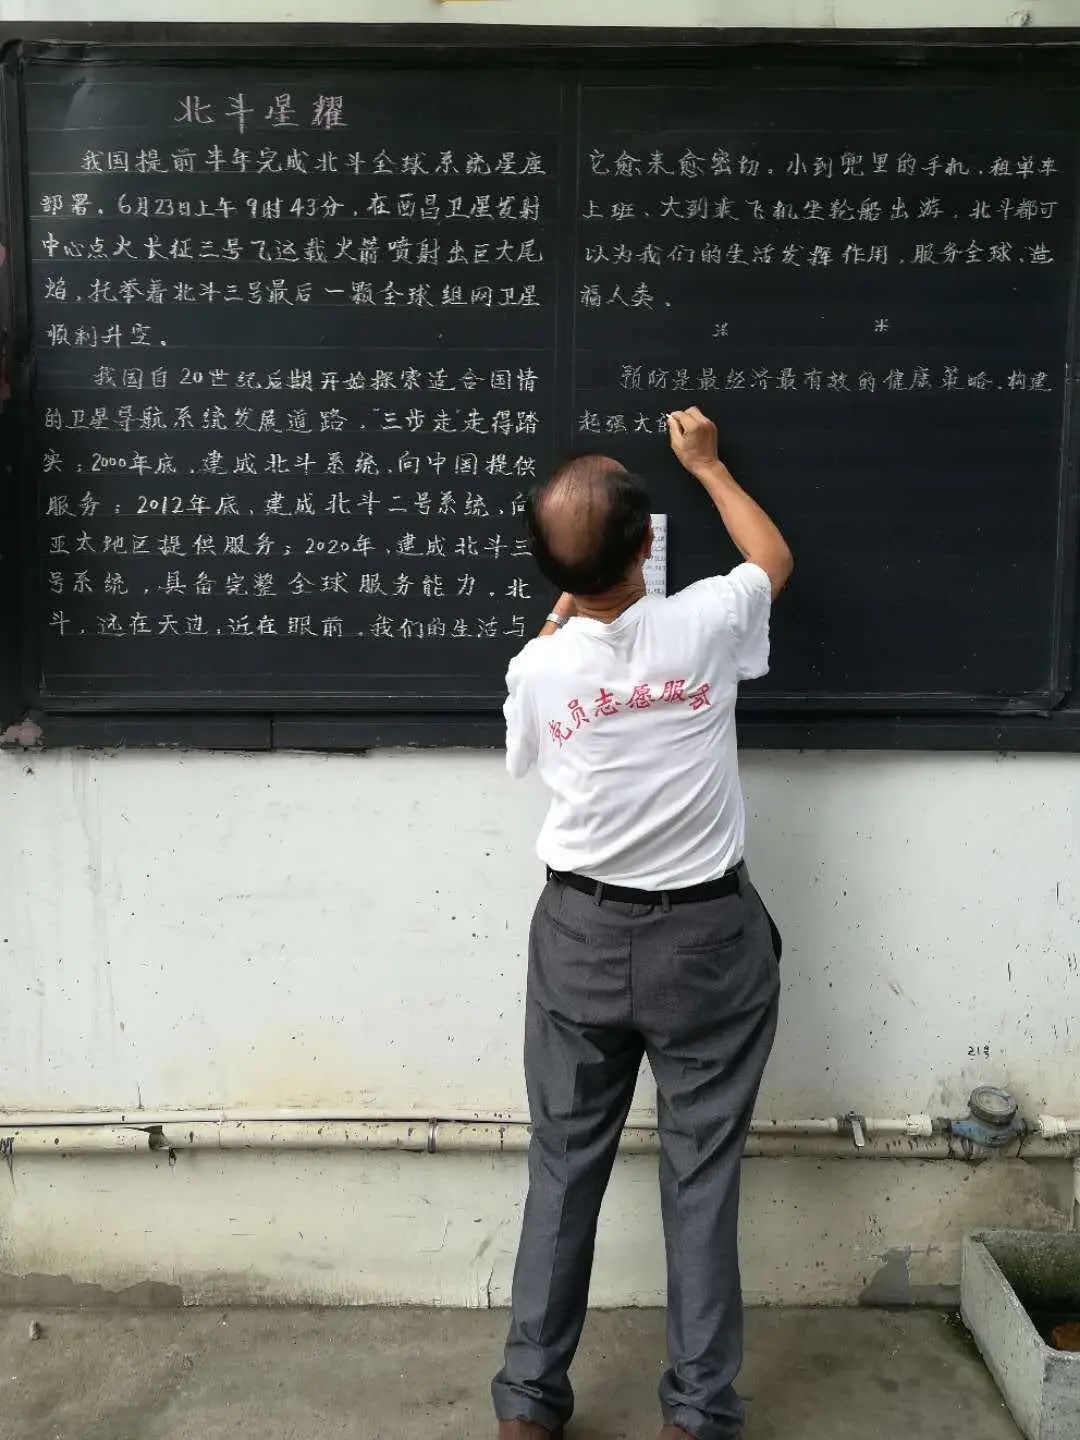 北斗星耀
我国提前半年完成北斗全球系统星座
部署。6月23日上午9时43分，在西昌卫星发射
中心点火长征三号飞运载火箭喷射出巨大尾
焰，托举着北斗三号最后一颗全球组网卫星
顺利升空。
我国自20世纪后期开始探索适合国情
的卫星导航系统发展道路，"三步走"走得踏
实：2000年底，建成北斗系统，向中国提供
服务；2012年底，建成北斗二号系统，向
亚太地区提供服务；2020年，建成北斗三
号系统，具备完整全球服务能力。北
斗，远在天边，近在眼前。我们的生活与
它愈来愈密切。小到兜里的手机，租单车
上班、大到乘飞机坐轮船出游，北斗都可
以为我们的生活发挥作用，服务全球、造
福人类。
米
预防是最经济最有效的健康策略，构建
起强大
党员志愿服务
21号